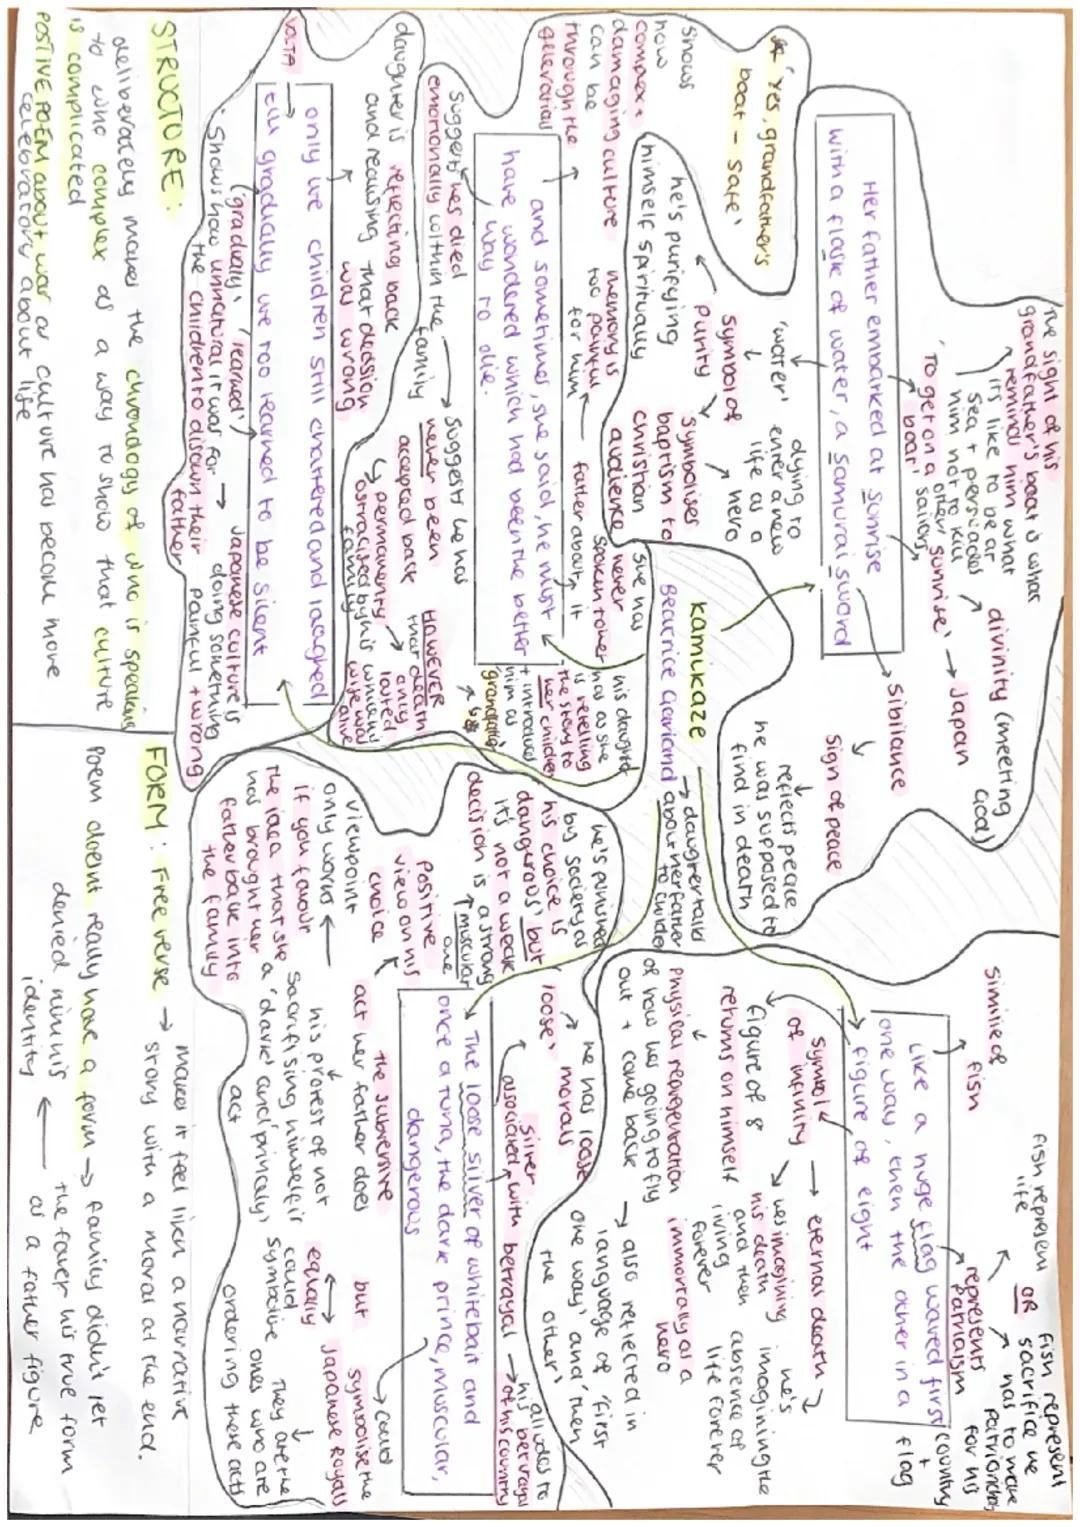 Kamikaze
Beatrice Garland → daughter told
about her father
to childer
Her father embarked at sunrise
with a flask of water, a samurai sword
The sight of his
grandfather's boat is what
reminds him what
it's like to be at
sea + persuades
him not to kill
'To get on a other
boat' sailors,
sunrise' → Japan
divinity (meeting
God)
Sibilance
sign of peace
reflects peace
he was supposed to
find in death
* 'Yes, grandfather's
boat - safe'
'water'
symbol of
purity
he's purifying
himself spiritually
dying to
enter a new
life as a
hero
symbolises
baptism to
christian
audience
shows
how
complex +
damaging culture
can be
through the
generations
and sometimes, she said, he must
have wondered which had been the better
way to die.
memory is
too painful
for him
father about it
she has
never
spoken to her
his daughter
has as she
is retelling
the story to
her children
+ introduces
him as
'grandfather'
suggests he's died
emotionally within the family
suggests he has
never been
accepted back
permanently
ostracised by his
family
HOWEVER
that death
only
lasted
whilst his
wife was
alive
daughter is reflecting back
and realising that decision
was wrong
VOLTA
only we children still chattered and laughed
till gradually we too learned to be silent
'gradually', 'learned'
shows how unnatural it was for
the children to disown their
father
Japanese culture is
doing something
painful + wrong
STRUCTURE:
deliberately makes the chronology of who is speaking
to who complex as a way to show that culture
is complicated
POSITIVE POEM about war as culture has become more
celebratory about life
like a huge flag waved first
one way, then the other in a
figure of eight
similie of
fish
fish represent
life
OR
fish represent
sacrifice he
has to make
for his
country
+
flag
represents
patriotism
symbol
of infinity
figure of 8
returns on himself
physical representation
of how he's going to fly
out + come back
eternal death
he's imagining
his death
and then
living
forever
immortally as a
hero
he's
imagining the
absence of
life forever
also reflected in
language of 'first
one way' and 'then
the other'
The loose silver of whitebait and
once a tuna, the dark prince, muscular,
dangerous
'loose'
he has loose
morals
silver
associated with betrayal
alludes to
his betrayal
of his country
he's punished
by society as
his choice is
'dangerous' but
it's not a weak
decision is a strong
'muscular' one
Positive
view on his
choice
viewpoint
only works
if you favour
the idea that she
has brought her
father back into
the family
the subversive
act her father does
his protest of not
sacrifising himself is
a 'dark' and 'princely'
act
but
equally
could
symbolise
could
symbolise the
Japanese Royals
They are the
ones who are
ordering these acts
FORM: Free verse → makes it feel like a narrative
story with a moral at the end.
Poem doesnt really have a form → family didn't let
the father his true form
as a father figure
denied him his
identity